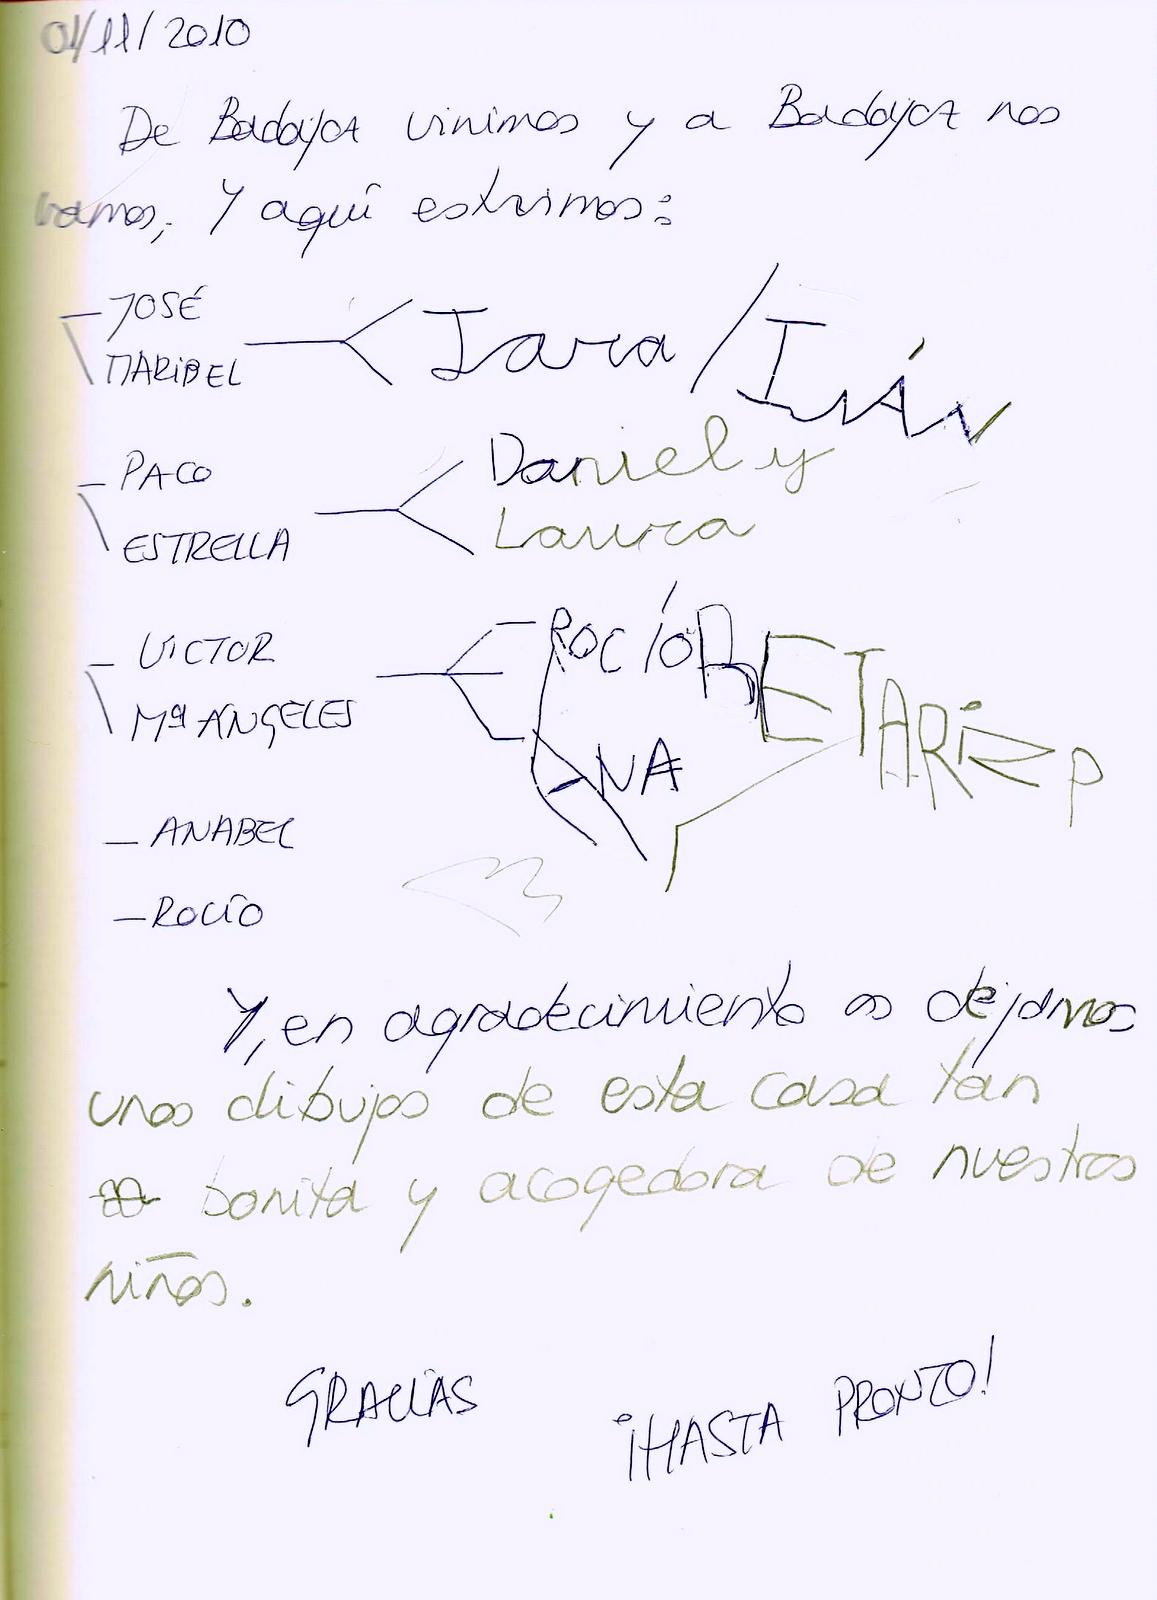 01/11/2010
De Badajoz vinimos y a Badajoz nos
vamos, Y aquí estuvimos:
- JOSÉ
MARIBEL
Iara / IVÁN
- PACO
ESTRELLA
Daniel y
Laura
- VICTOR
Mª ANGELES
ROCÍO
ANA
- ANABEL
- ROCÍO
Y, en agradecimiento os dejamos
unos dibujos de esta casa tan
bonita y acogedora de nuestros
niños.
GRACIAS
¡HASTA PRONTO!